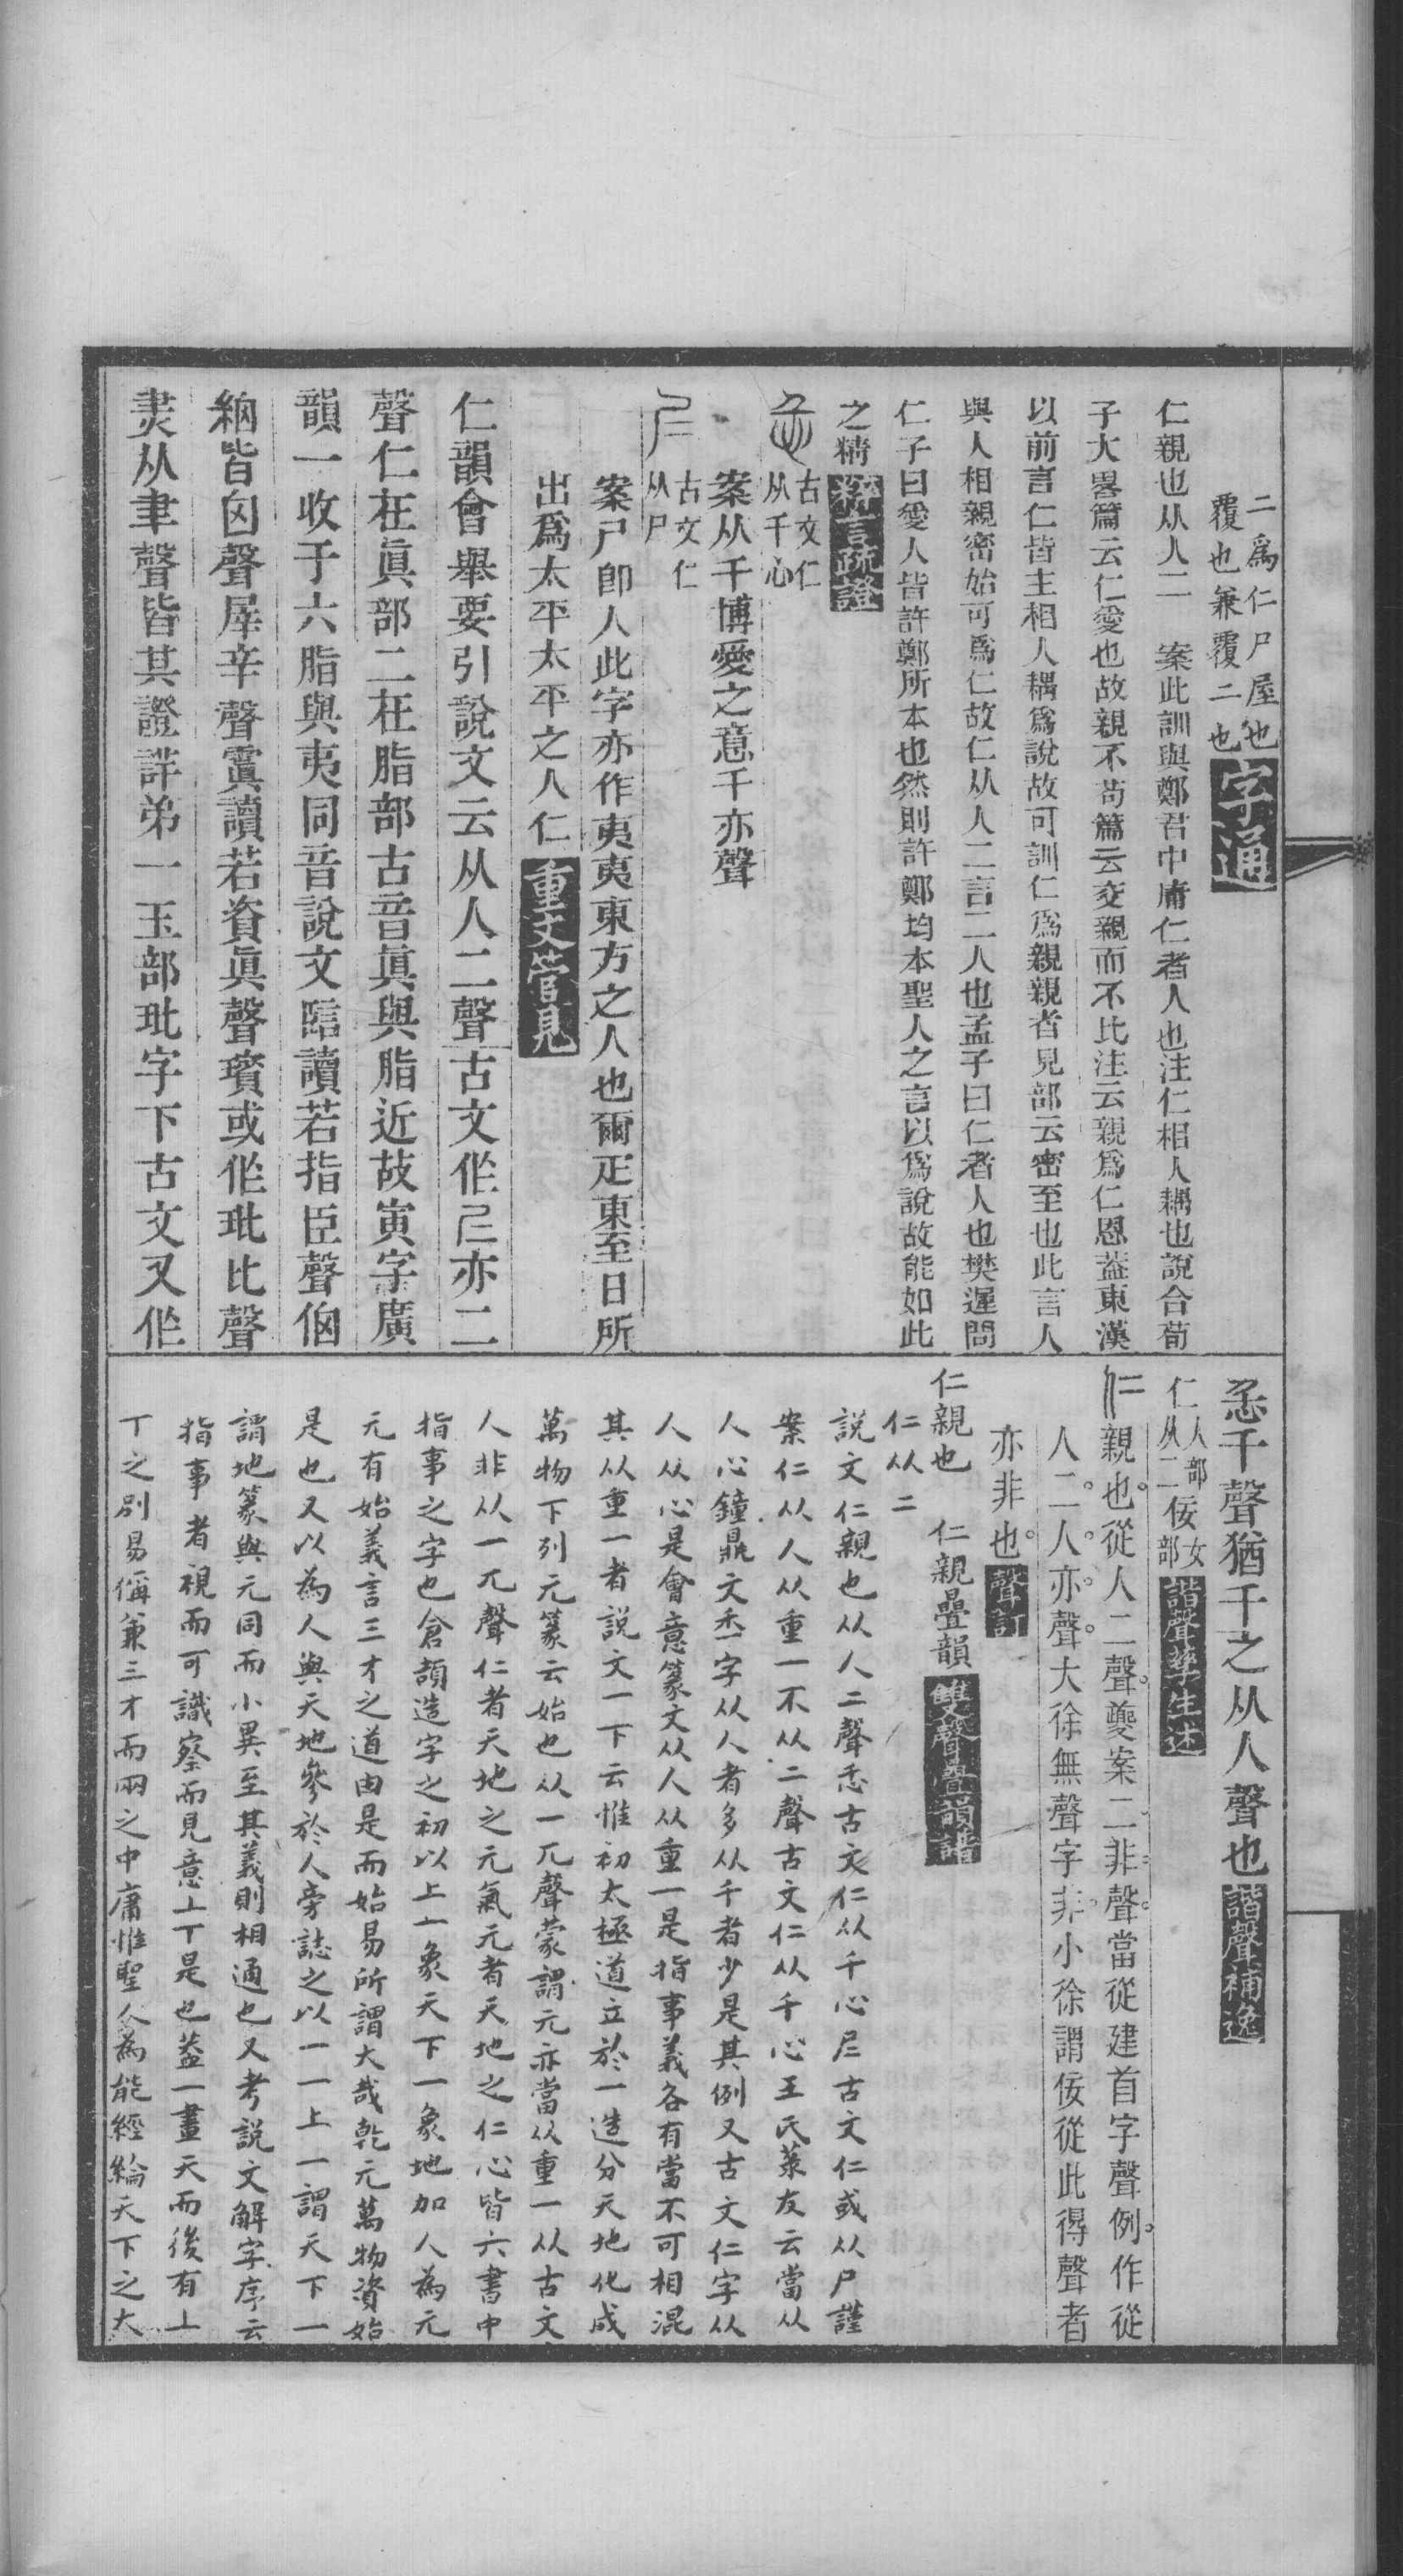 二爲仁尸屋也
覆也兼覆二也
字通
仁親也从人二　案此訓與鄭君中庸仁者人也注仁相人耦也說合荀
子大畧篇云仁愛也故親不苟篇云交親而不比注云親爲仁恩葢東漢
以前言仁皆主相人耦爲說故可訓仁爲親親者見部云密至也此言人
與人相親密始可爲仁故仁从人二言二人也孟子曰仁者人也樊遲問
仁子曰愛人皆許鄭所本也然則許鄭均本聖人之言以爲說故能如此
之精
釋言疏證
古文仁
从千心
案从千博愛之意千亦聲
古文仁
从尸
案尸卽人此字亦作夷夷東方之人也爾疋東至日所
出爲太平太平之人仁
重文管見
仁韻會舉要引說文云从人二聲古文作𡰥亦二
聲仁在眞部二在脂部古音眞與脂近故寅字廣
韻一收于六脂與夷同音說文䣤讀若指臣聲㐫
絪皆囟聲犀辛聲霣讀若資眞聲璸或作玭比聲
㶳从聿聲皆其證許弟一玉部玭字下古文又作
忎千聲猶千之从人聲也
諧聲補逸
仁人部从二佞女部
諧聲孳生述
仁親也從人二聲夔案二非聲當從建首字聲例作從
人二人亦聲大徐無聲字非小徐謂佞從此得聲者
亦非也
聲訂
仁親也　仁親疊韻
雙聲疊韻譜
仁从二
説文仁親也从人二聲忎古文仁从千心𡰥古文仁或从尸謹
案仁从人从重一不从二聲古文仁从千心王氏菉友云當从
人心鐘鼎文秂字从人者多从千者少是其例又古文仁字从
人从心是會意篆文从人从重一是指事義各有當不可相混
其从重一者説文一下云惟初太極道立於一造分天地化成
萬物下列元篆云始也从一兀聲蒙謂元亦當从重一从古文
人非从一兀聲仁者天地之元氣元者天地之仁心皆六書中
指事之字也倉頡造字之初以上一象天下一象地加人為元
元有始義言三才之道由是而始易所謂大哉乾元萬物資始
是也又以為人與天地參於人旁誌之以一一上一謂天下一
謂地篆與元同而小異至其義則相通也又考説文解字序云
指事者視而可識察而見意丄丅是也葢一畫天而後有丄
丅之別易偁兼三才而兩之中庸惟聖人為能經綸天下之大